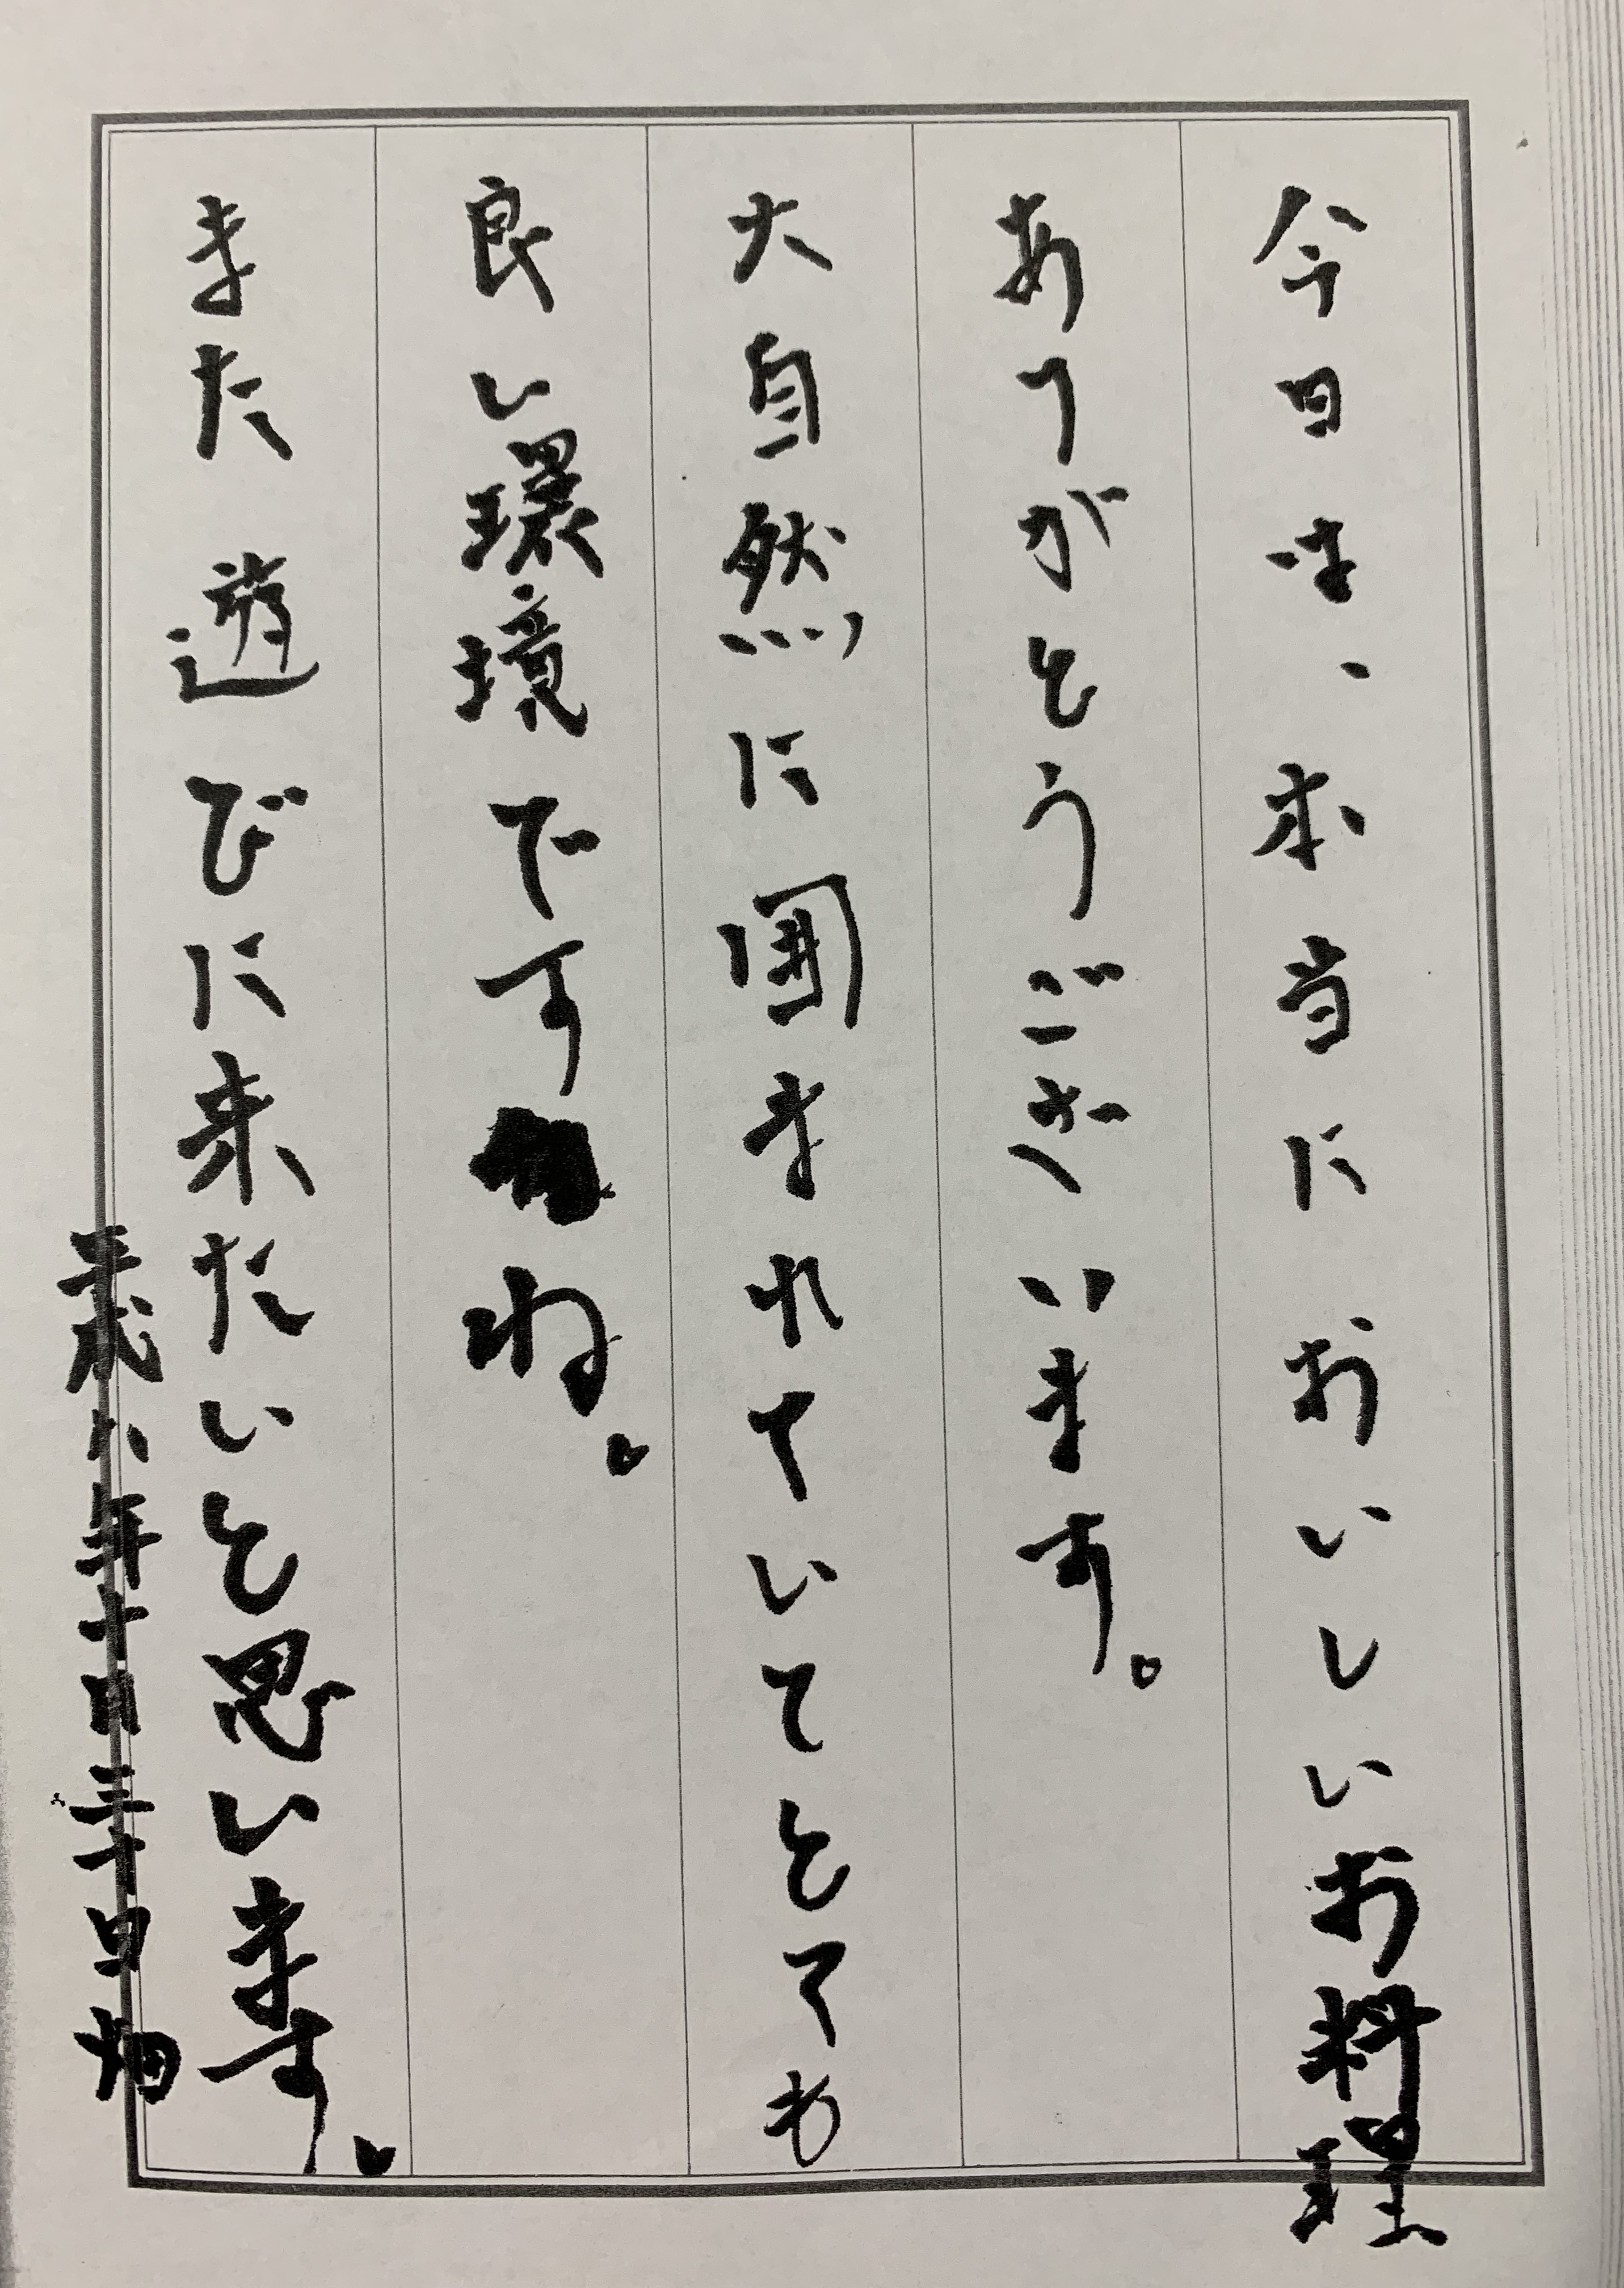 今日は、本当においしいお料理
ありがとうございます。
大自然に囲まれていてとても
良い環境ですね。
また遊びに来たいと思います。
平成八年十月三十日 畑